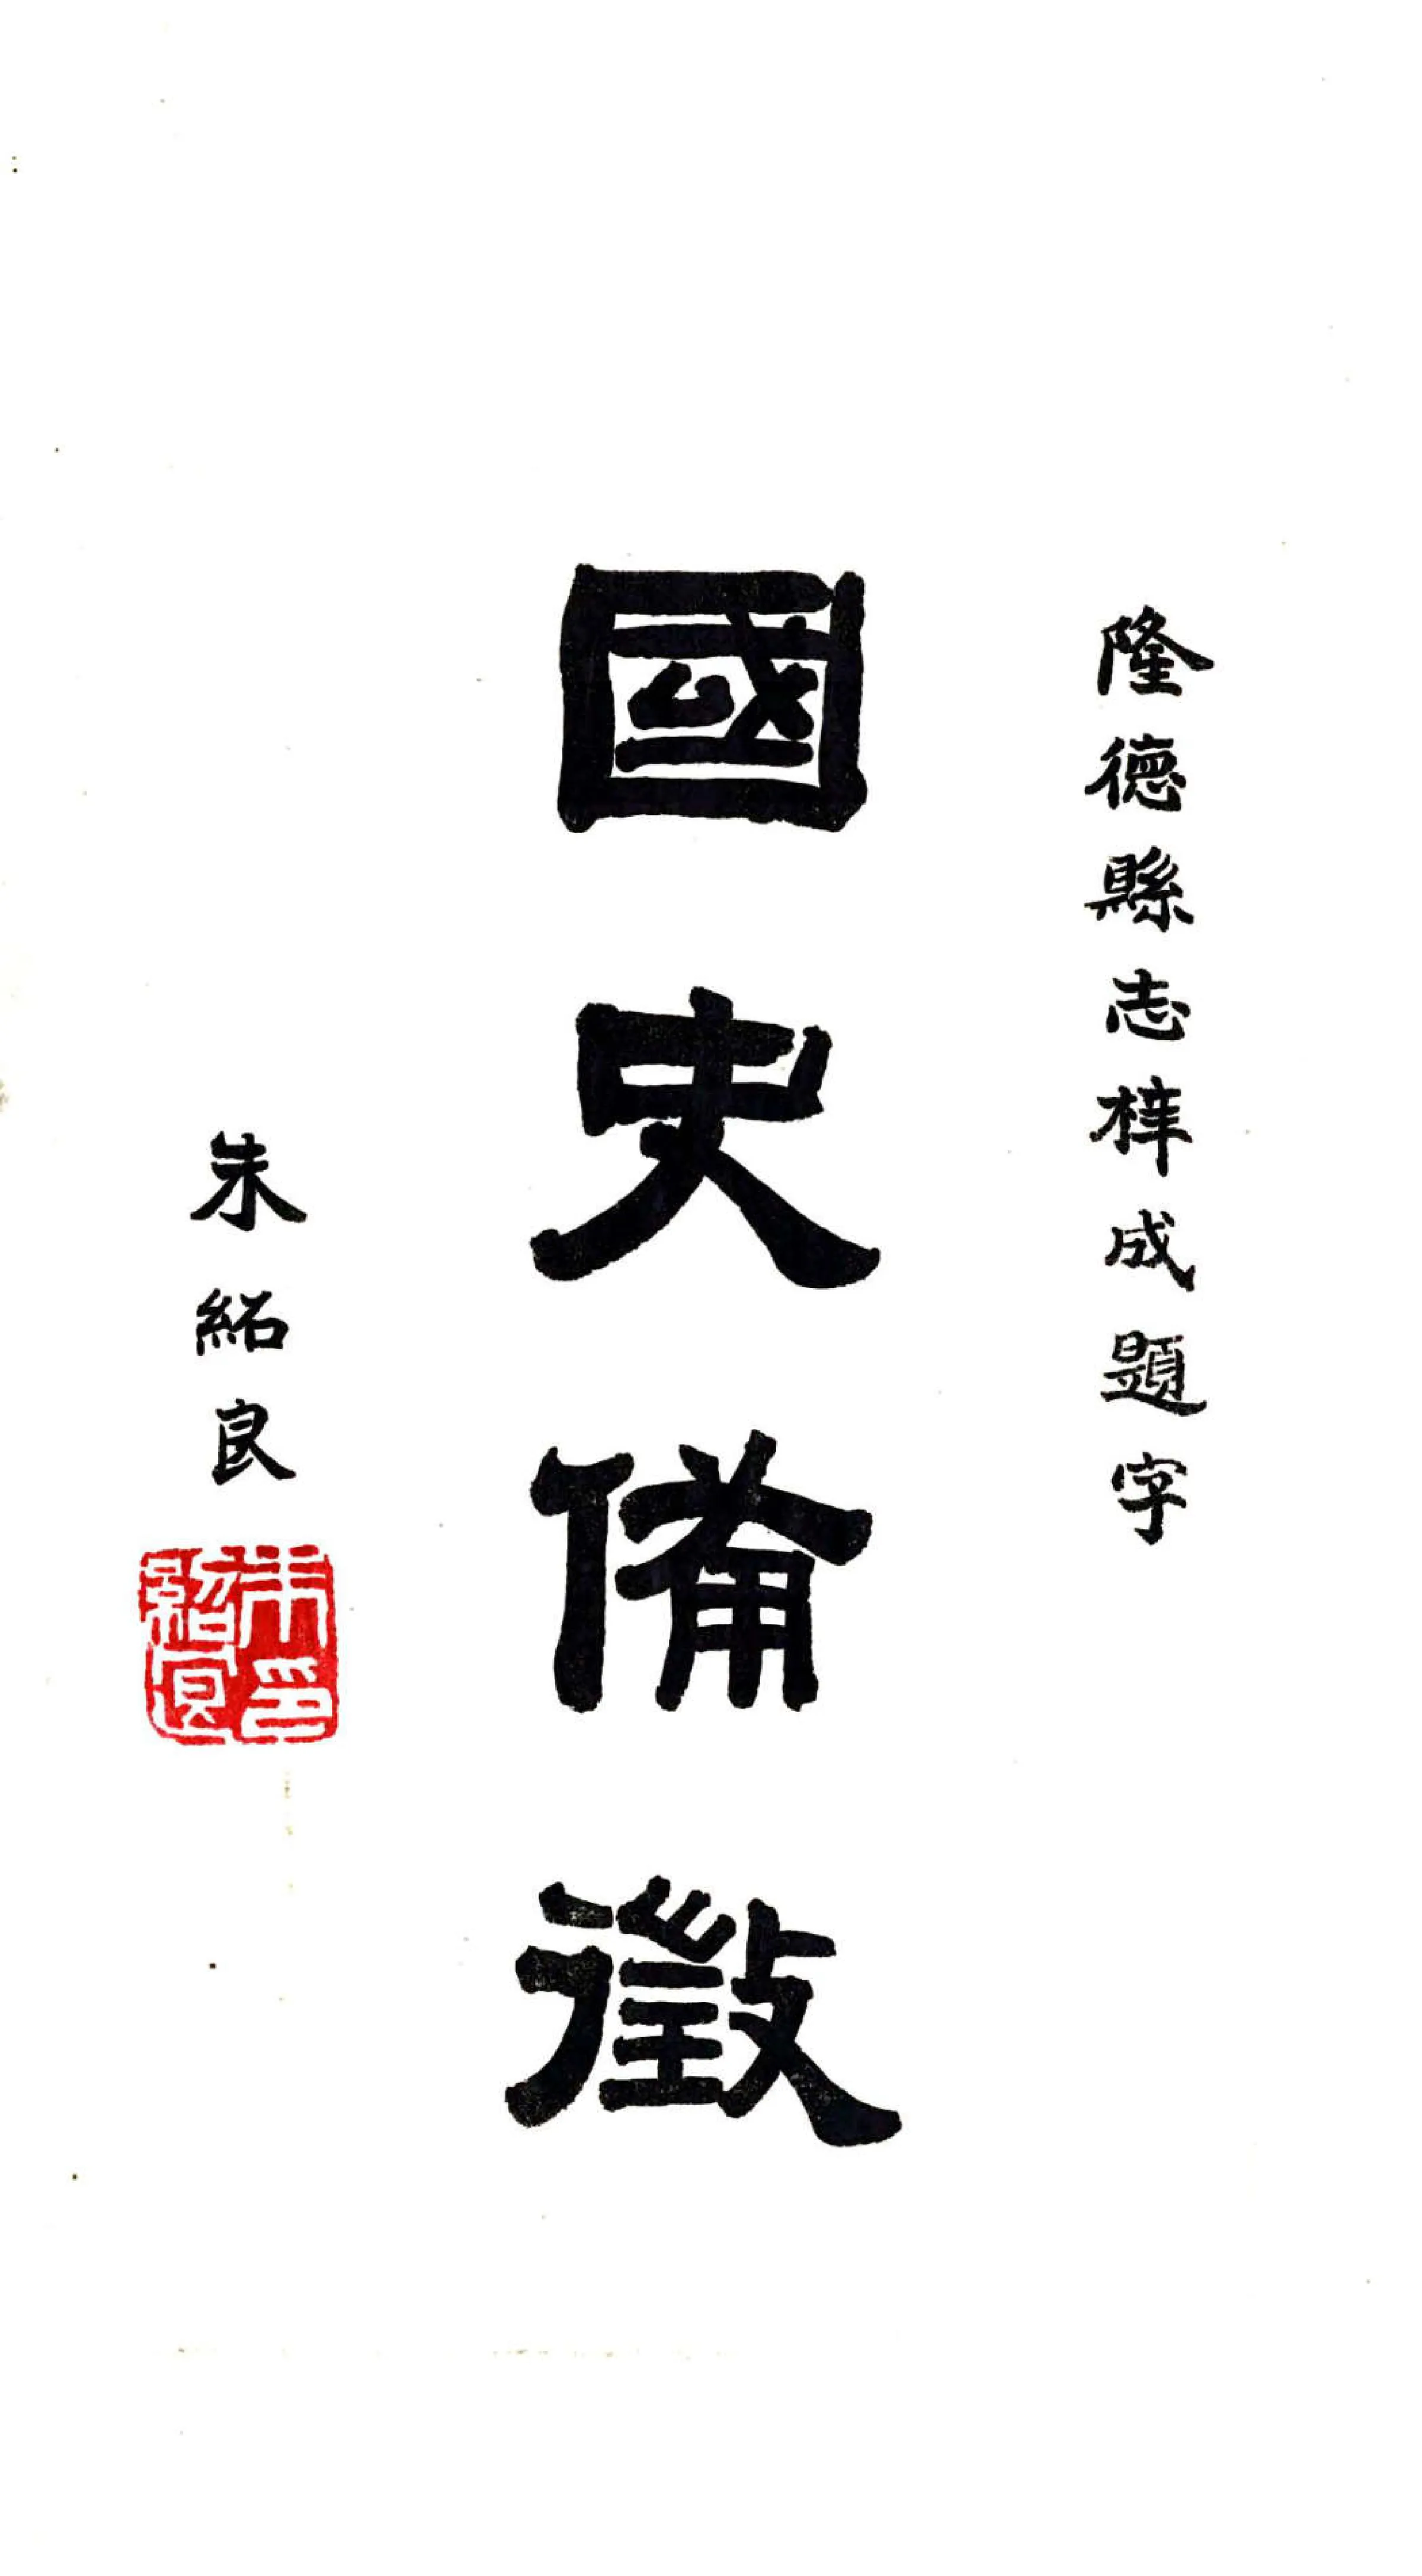 隆德縣志梓成題字
國史備徵
朱紹良
朱印紹良